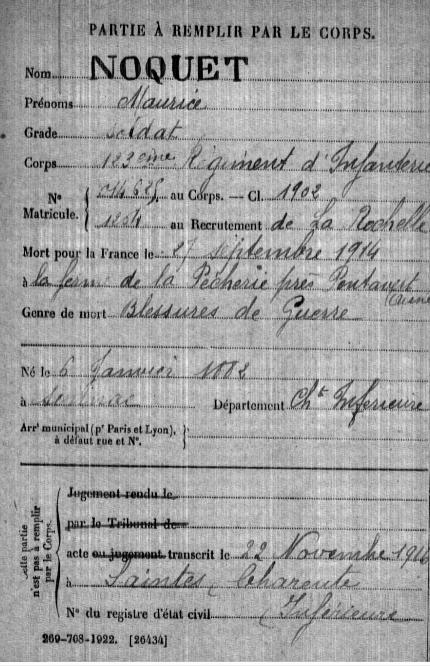 PARTIE À REMPLIR PAR LE CORPS.
Nom NOQUET
Prénoms Maurice
Grade Soldat
Corps 123ème Régiment d'Infanterie
Nº Matricule. au Corps. — Cl. 1902
1204 au Recrutement de La Rochelle
Mort pour la France le 27 septembre 1914
à la ferme de la Pêcherie près Pontavert
(Aisne)
Genre de mort Blessures de Guerre
Né le 6 Janvier 1882
à Département Chte Inférieure
Arrt municipal (pr Paris et Lyon),
à défaut rue et Nº.
Cette partie
n'est pas à remplir
par le Corps.
Jugement rendu le
par le Tribunal de
acte ou jugement transcrit le 22 Novembre 1916
à Saintes, Charente
Inférieure
Nº du registre d'état civil
269-708-1922. [26434]